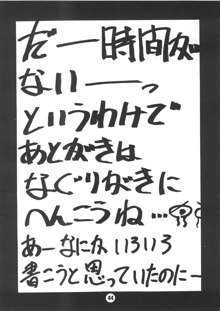 だー時間が
ないーーっ
というわけで
あとがきは
なぐりがきに
へんこうね…
あーなにかいろいろ
書こうと思っていたのにー
44